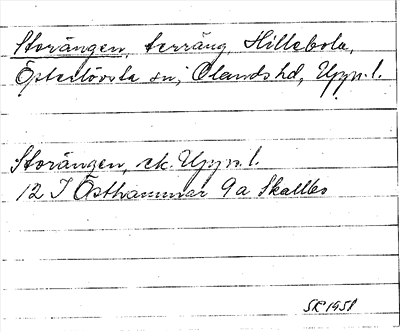 Storängen, terräng, Hillebola,
Österlövsta sn, Olands hd, Uppl.
Storängen, ek. Uppl.
12 I Östhammar 9a Skallbo
SR 1951